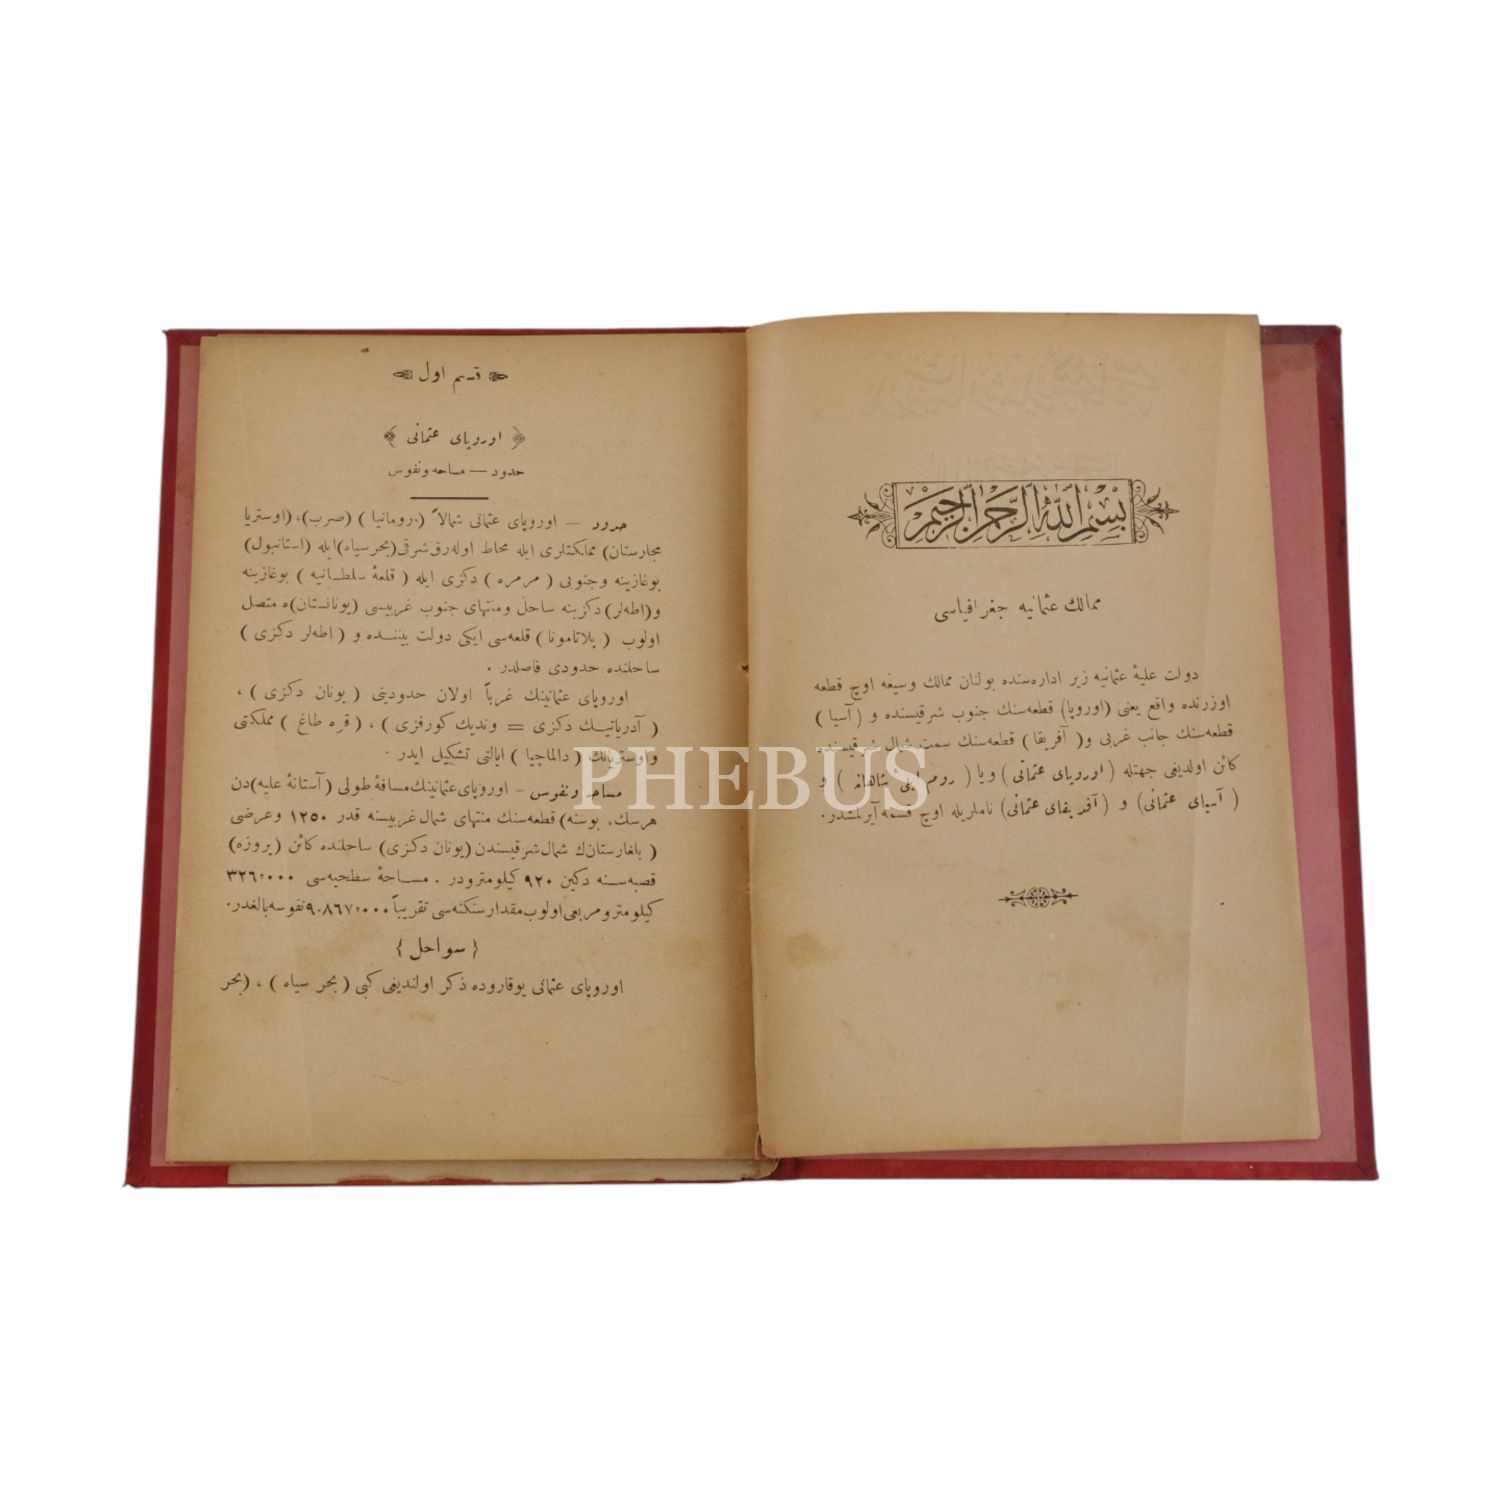 بسم الله الرحمن الرحيم
ممالك عثمانيه جغرافياسى
دولت عليهٔ عثمانيه زير اداره‌سنده بولنان ممالك وسيعه اوچ قطعه
اوزرنده واقع يعنى (اوروپا) قطعه‌سنك جنوب شرقيسنده و (آسيا)
قطعه‌سنك جانب غربى و (آفريقا) قطعه‌سنك سمت شمال شرقيسنده
كائن اولديغى جهتله (اوروپاى عثمانى) ويا (روم ايلى شاهانه) و
(آسياى عثمانى) و (آفريقاى عثمانى) ناملريله اوچ قسمه آيرلمشدر.
قسم اول
اوروپاى عثمانى
حدود — مساحه ونفوس
حدود — اوروپاى عثمانى شمالاً (رومانيا) (صرب)، (اوستريا
مجارستان) مملكتلرى ايله محاط اوله‌رق شرقى (بحر سياه) ايله (استانبول)
بوغازينه وجنوبى (مرمره) دكزى ايله (قلعهٔ سلطانيه) بوغازينه
و(اطه‌لر) دكزينه ساحل ومنتهاى جنوب غربيسى (يونانستان)ه متصل
اولوب (پلاتامونا) قلعه‌سى ايكى دولت بيننده و (اطه‌لر دكزى)
ساحلنده حدودى فاصلدر.
اوروپاى عثمانينك غرباً اولان حدودينى (يونان دكزى)،
(آدرياتيك دكزى = ونديك كورفزى)، (قره طاغ) مملكتى
واوستريانك (دالماچيا) ايالتى تشكيل ايدر.
مساحه ونفوس — اوروپاى عثمانينك مسافهٔ طولى (آستانهٔ عليه)دن
هرسك، بوسنه) قطعه‌سنك منتهاى شمال غربيسنه قدر ١٢٥٠ وعرضى
(بلغارستان‌ك شمال شرقيسندن (يونان دكزى) ساحلنده كائن (پروزه)
قصبه‌سنه دكين ٩٢٠ كيلومترودر. مساحهٔ سطحيه‌سى ٣٢٦،٠٠٠
كيلومترو مربعى اولوب مقدار سكنه‌سى تقريباً ٩،٨٦٧،٠٠٠ نفوسه بالغدر.
{سواحل}
اوروپاى عثمانى يوقاروده ذكر اولنديغى كبى (بحر سياه)، (بحر
PHEBUS